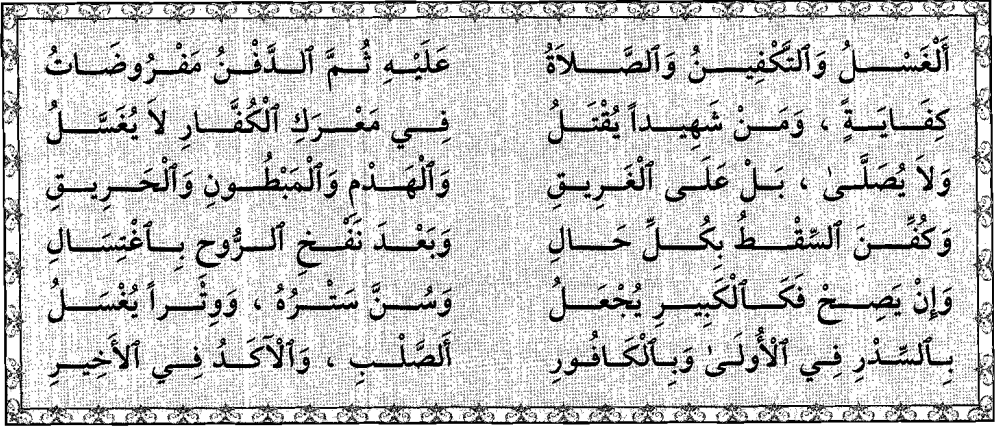 أَلْغَسْلُ وَٱلتَّكْفِينُ وَٱلصَّلاَةُ عَلَيْهِ ثُمَّ ٱلدَّفْنُ مَفْرُوضَاتُ
كِفَايَةً ، وَمَنْ شَهِيداً يُقْتَلُ فِي مَعْرَكِ ٱلْكُفَّارِ لاَ يُغَسَّلُ
وَلاَ يُصَلَّىٰ ، بَلْ عَلَى ٱلْغَرِيقِ وَٱلْهَدْمِ وَٱلْمَبْطُونِ وَٱلْحَرِيقِ
وَكُفِّنَ ٱلسِّقْطُ بِكُلِّ حَالِ وَبَعْدَ نَفْخِ ٱلرُّوحِ بِٱغْتِسَالِ
وَإِنْ يَصِحْ فَكَٱلْكَبِيرِ يُجْعَلُ وَسُنَّ سَتْرُهُ ، وَوِتْراً يُغْسَلُ
بِٱلسِّدْرِ فِي ٱلْأُولَىٰ وَبِٱلْكَافُورِ ٱلصَّلْبِ ، وَٱلْآكَدُ فِي ٱلأَخِيرِ